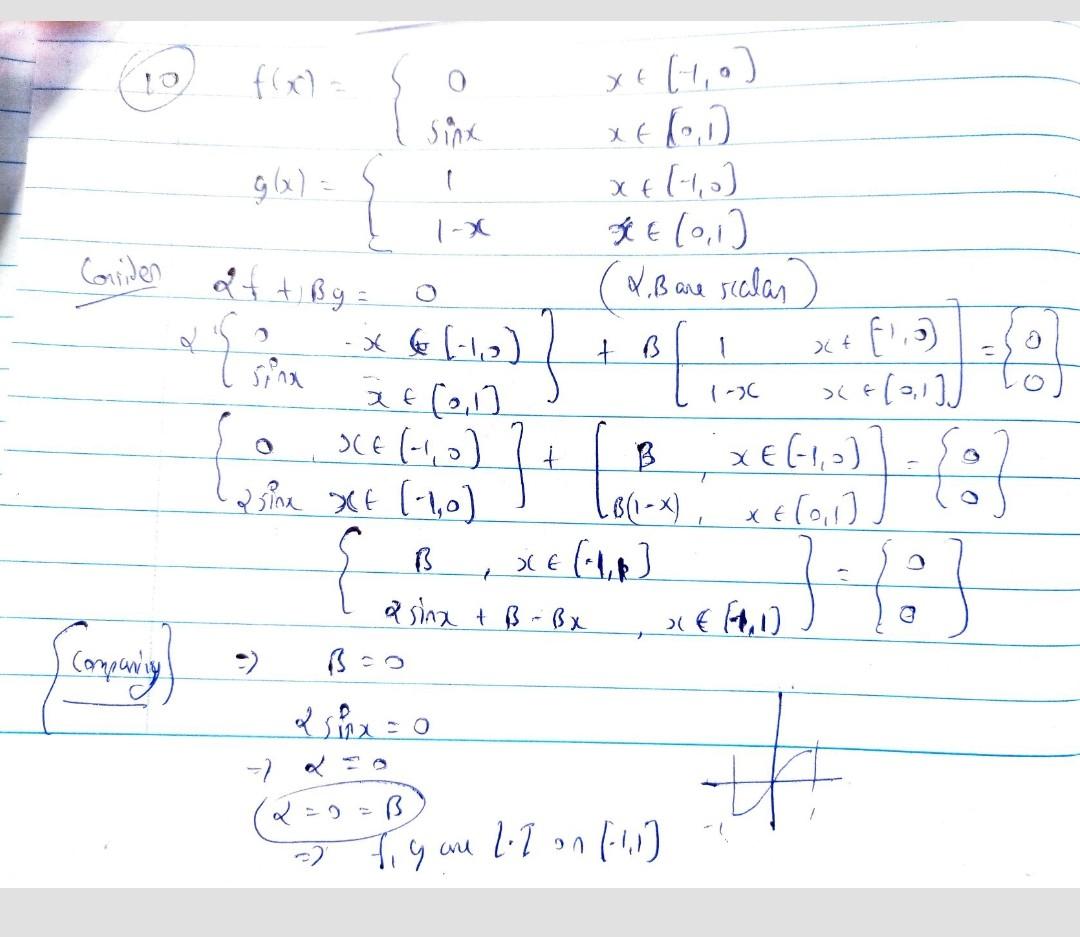 10 f(x) = { 0 x ∈ [-1,0)
sinx x ∈ [0,1)
g(x) = { 1 x ∈ [-1,0)
1-x x ∈ (0,1)
Consider αf + βg = 0 (α,β are scalar)
α { 0 x ∈ [-1,0) } + β [ 1 x ∈ [-1,0) ] = { 0 }
sinx x ∈ [0,1] 1-x x ∈ [0,1] 0
{ 0 , x ∈ [-1,0) } + [ β , x ∈ [-1,0) ] = { 0 }
α sinx x ∈ [-1,0] β(1-x) , x ∈ [0,1] 0
{ β , x ∈ [-1, ] } = { 0 }
α sinx + β - βx , x ∈ [ ,1] 0
Comparing => β = 0
α sinx = 0
=> α = 0
α = 0 = β
-1 1
=> f, g are L.I on [-1,1]